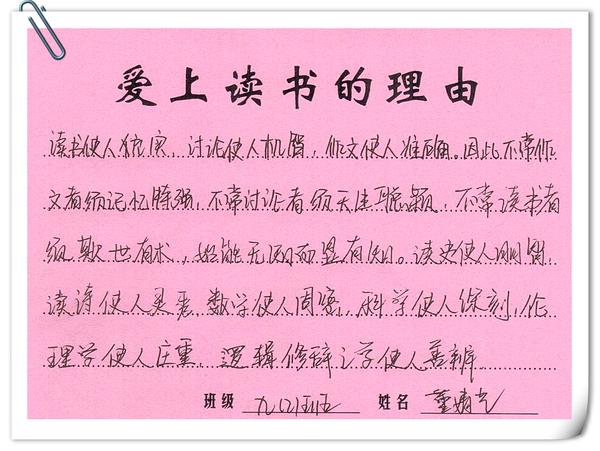 爱上读书的理由
读书使人充实，讨论使人机智，作文使人准确。因此不常作
文者须记忆特强，不常讨论者须天生聪颖，不常读书者
须欺世有术，始能无知而显有知。读史使人明智，
读诗使人灵秀，数学使人周密，科学使人深刻，伦
理学使人庄重，逻辑修辞之学使人善辨
班级 姓名 董